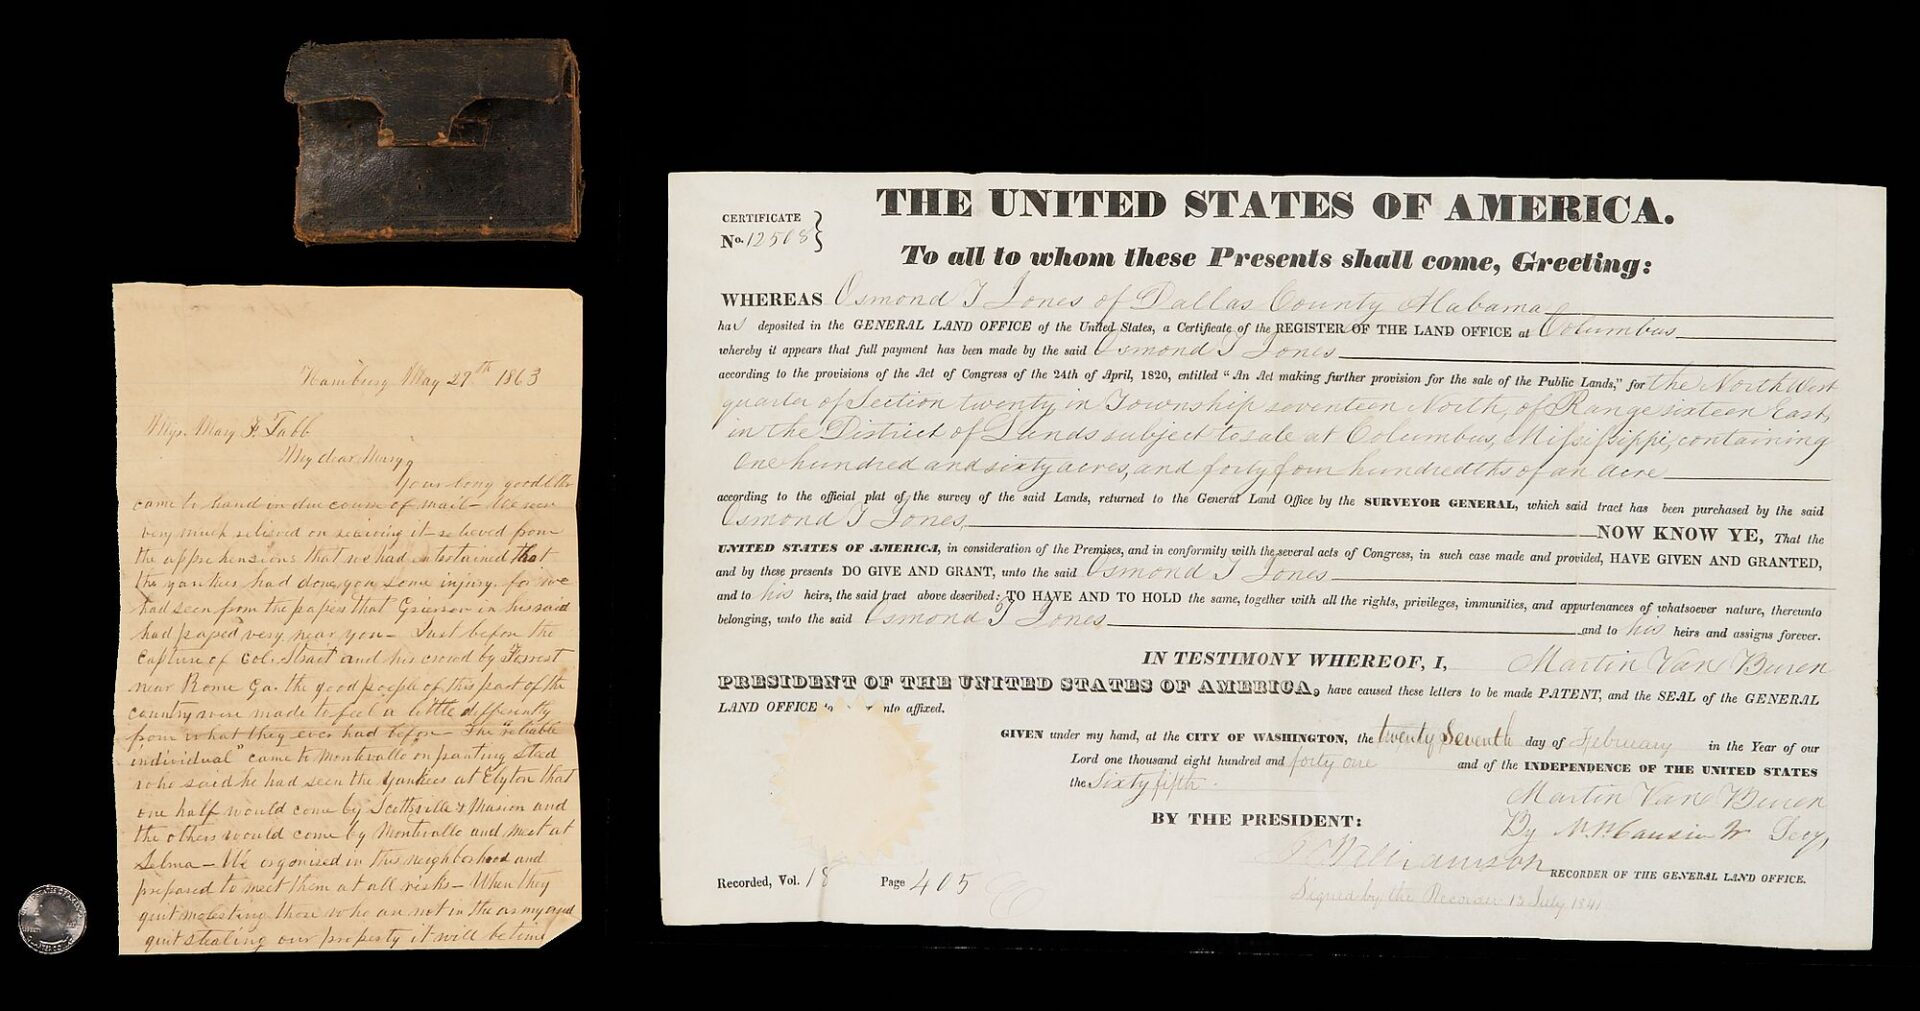 Hamburg May 29th 1863
Mrs. Mary F. Tabb
My dear Mary,
Your long good letter
came to hand in due course of mail - We were
very much relieved on receiving it - relieved from
the apprehensions that we had entertained that
the yankees had done you some injury. for we
had seen from the papers that Grierson in his raid
had passed very near you - Just before the
Capture of Col. Straet and his crowd by Forrest
near Rome Ga. the good people of this part of the
country were made to feel a little differently
from what they ever had before - The "reliable
individual" came to Montevallo on panting Stead
who said he had seen the Yankees at Elyton that
one half would come by Scottsville & Marion and
the others would come by Montevallo and meet at
Selma - We organised in this neighborhood and
prepared to meet them at all risks - When they
quit molesting those who are not in the army and
quit stealing our property it will be time
CERTIFICATE
No. 12508
THE UNITED STATES OF AMERICA.
To all to whom these Presents shall come, Greeting:
WHEREAS Osmond T Jones of Dallas County Alabama
has deposited in the GENERAL LAND OFFICE of the United States, a Certificate of the REGISTER OF THE LAND OFFICE at Columbus
whereby it appears that full payment has been made by the said Osmond T Jones
according to the provisions of the Act of Congress of the 24th of April, 1820, entitled "An Act making further provision for the sale of the Public Lands," for the North West
quarter of Section twenty, in Township seventeen North, of Range sixteen East,
in the District of Lands subject to sale at Columbus, Mississippi, containing
One hundred and sixty acres, and forty four hundredths of an acre
according to the official plat of the survey of the said Lands, returned to the General Land Office by the SURVEYOR GENERAL, which said tract has been purchased by the said
Osmond T Jones,
NOW KNOW YE, That the
UNITED STATES OF AMERICA, in consideration of the Premises, and in conformity with the several acts of Congress, in such case made and provided, HAVE GIVEN AND GRANTED,
and by these presents DO GIVE AND GRANT, unto the said Osmond T Jones
and to his heirs, the said tract above described: TO HAVE AND TO HOLD the same, together with all the rights, privileges, immunities, and appurtenances of whatsoever nature, thereunto
belonging, unto the said Osmond T Jones
and to his heirs and assigns forever.
IN TESTIMONY WHEREOF, I, Martin Van Buren
PRESIDENT OF THE UNITED STATES OF AMERICA, have caused these letters to be made PATENT, and the SEAL of the GENERAL
LAND OFFICE to nto affixed.
GIVEN under my hand, at the CITY OF WASHINGTON, the twenty Seventh day of February in the Year of our
Lord one thousand eight hundred and forty one and of the INDEPENDENCE OF THE UNITED STATES
the Sixty fifth.
Martin Van Buren
BY THE PRESIDENT:
By Secy,
Williamson RECORDER OF THE GENERAL LAND OFFICE.
Recorded, Vol. 18 Page 405
Signed by the Recorder 13 July 1841